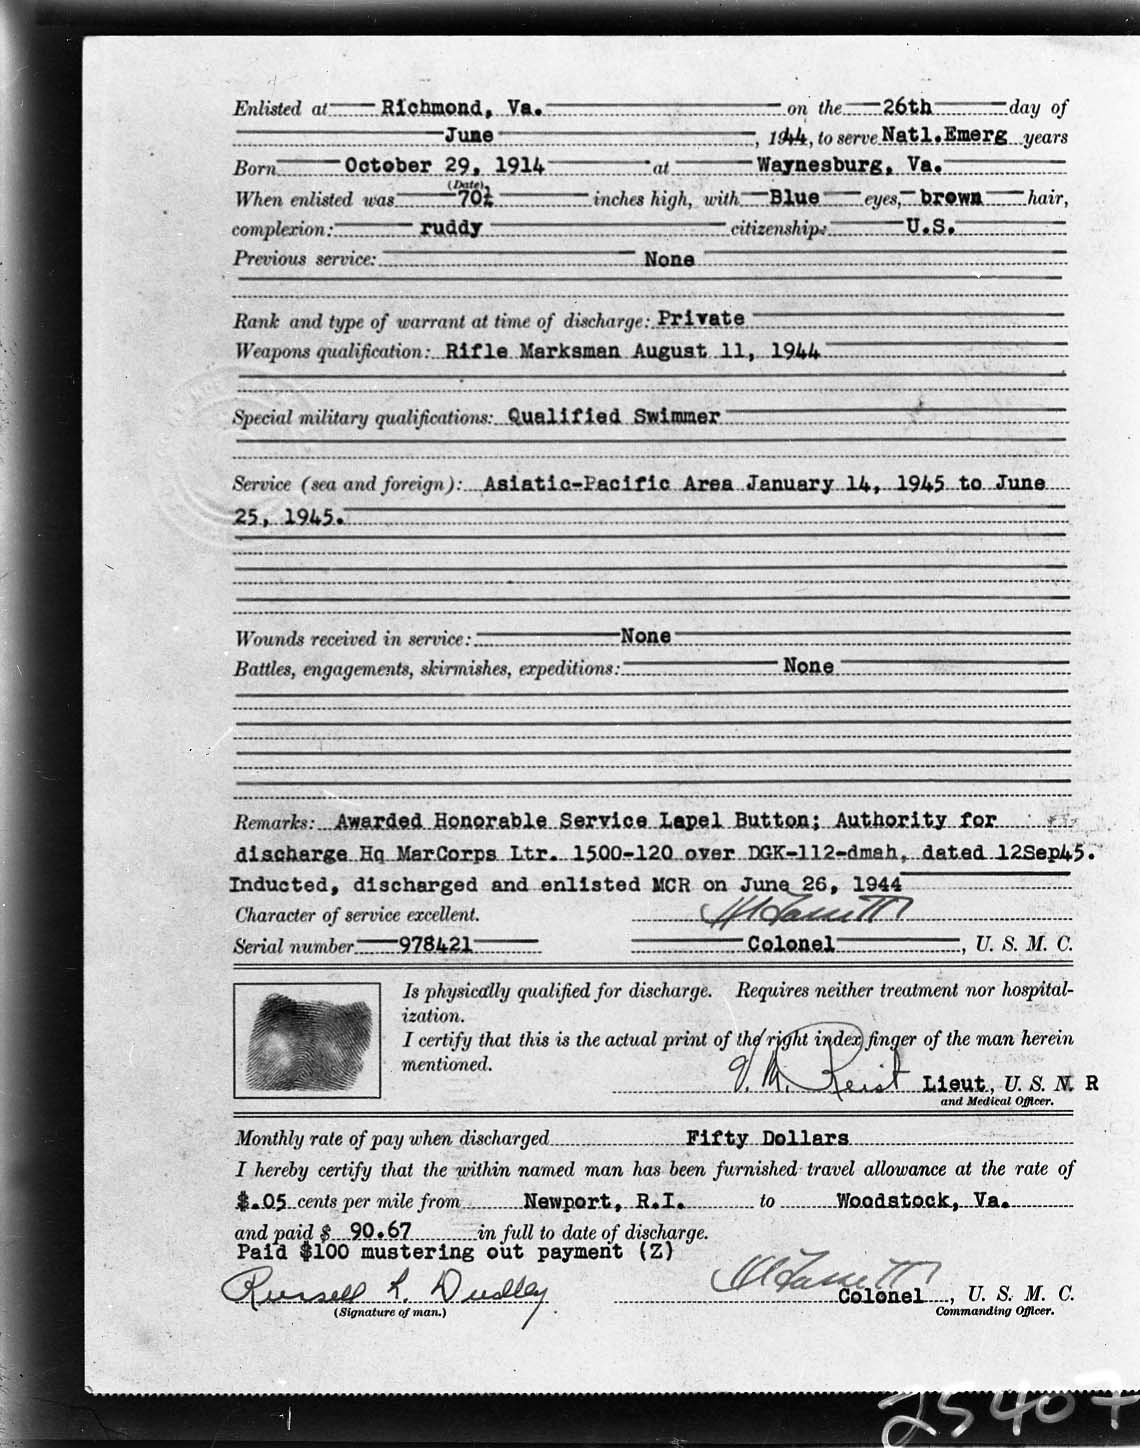 Enlisted at Richmond, Va. on the 26th day of
June, 1944, to serve Natl.Emerg years
Born October 29, 1914 at Waynesburg, Va.
(Date)
When enlisted was 70½ inches high, with Blue eyes, brown hair,
complexion: ruddy citizenship: U.S.
Previous service: None
Rank and type of warrant at time of discharge: Private
Weapons qualification: Rifle Marksman August 11, 1944
Special military qualifications: Qualified Swimmer
Service (sea and foreign): Asiatic-Pacific Area January 14, 1945 to June
25, 1945.
Wounds received in service: None
Battles, engagements, skirmishes, expeditions: None
Remarks: Awarded Honorable Service Lapel Button; Authority for
discharge Hq MarCorps Ltr. 1500-120 over DGK-112-dmah, dated 12Sep45.
Inducted, discharged and enlisted MCR on June 26, 1944
Character of service excellent.
Serial number 978421 Colonel, U. S. M. C.
Is physically qualified for discharge. Requires neither treatment nor hospital-
ization.
I certify that this is the actual print of the right index finger of the man herein
mentioned.
Reist Lieut., U. S. N. R
and Medical Officer.
Monthly rate of pay when discharged Fifty Dollars
I hereby certify that the within named man has been furnished travel allowance at the rate of
$.05 cents per mile from Newport, R.I. to Woodstock, Va.
and paid $ 90.67 in full to date of discharge.
Paid $100 mustering out payment (Z)
Russell L. Dudley
(Signature of man.)
Colonel, U. S. M. C.
Commanding Officer.
25407